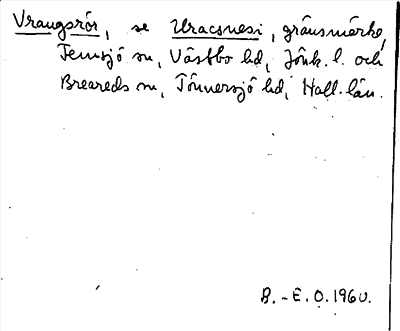 Vraugsrör, se Uracsnesi, gränsmärke,
Femsjö sn, Västbo hd, Jönk. l. och
Breareds sn, Tönnersjö hd, Hall. län.
B.-E. O. 1960.